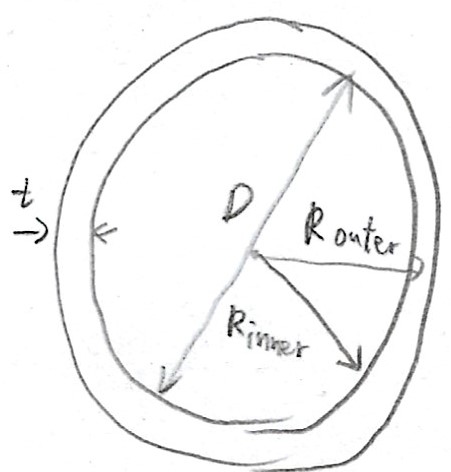 t
D
Router
Rinner